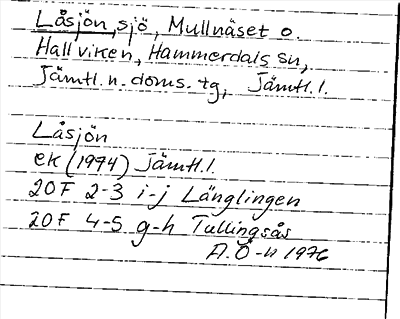 Låsjön, sjö, Mullnäset o.
Hallviken, Hammerdals sn,
Jämtl. n. doms. tg, Jämtl. l.
Låsjön
ek (1974) Jämtl. l.
20F 2-3 i-j Länglingen
20F 4-5 g-h Tullingsås
A.Ö-n 1976